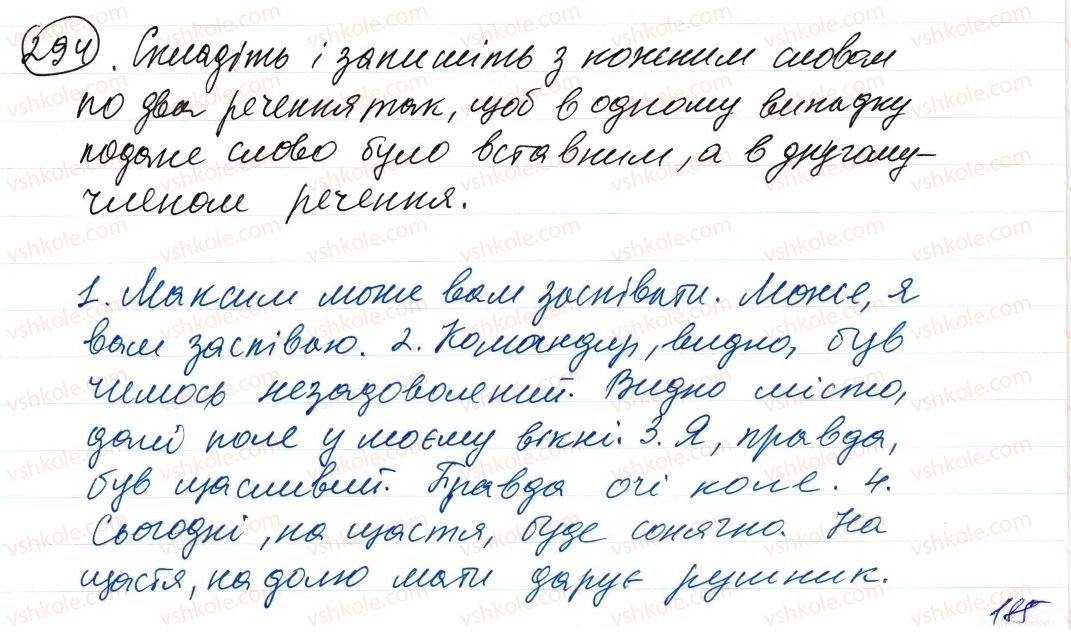 294. Складіть і запишіть з кожним словом
по два речення так, щоб в одному випадку
подане слово було вставним, а в другому –
членом речення.
1. Максим може вам заспівати. Може, я
вам заспіваю. 2. Командир, видно, був
чимось незадоволений. Видно місто,
далі поле у моєму вікні. 3. Я, правда,
був щасливий. Правда очі коле. 4.
Сьогодні, на щастя, буде сонячно. На
щастя, на долю мати дарує рушник.
185